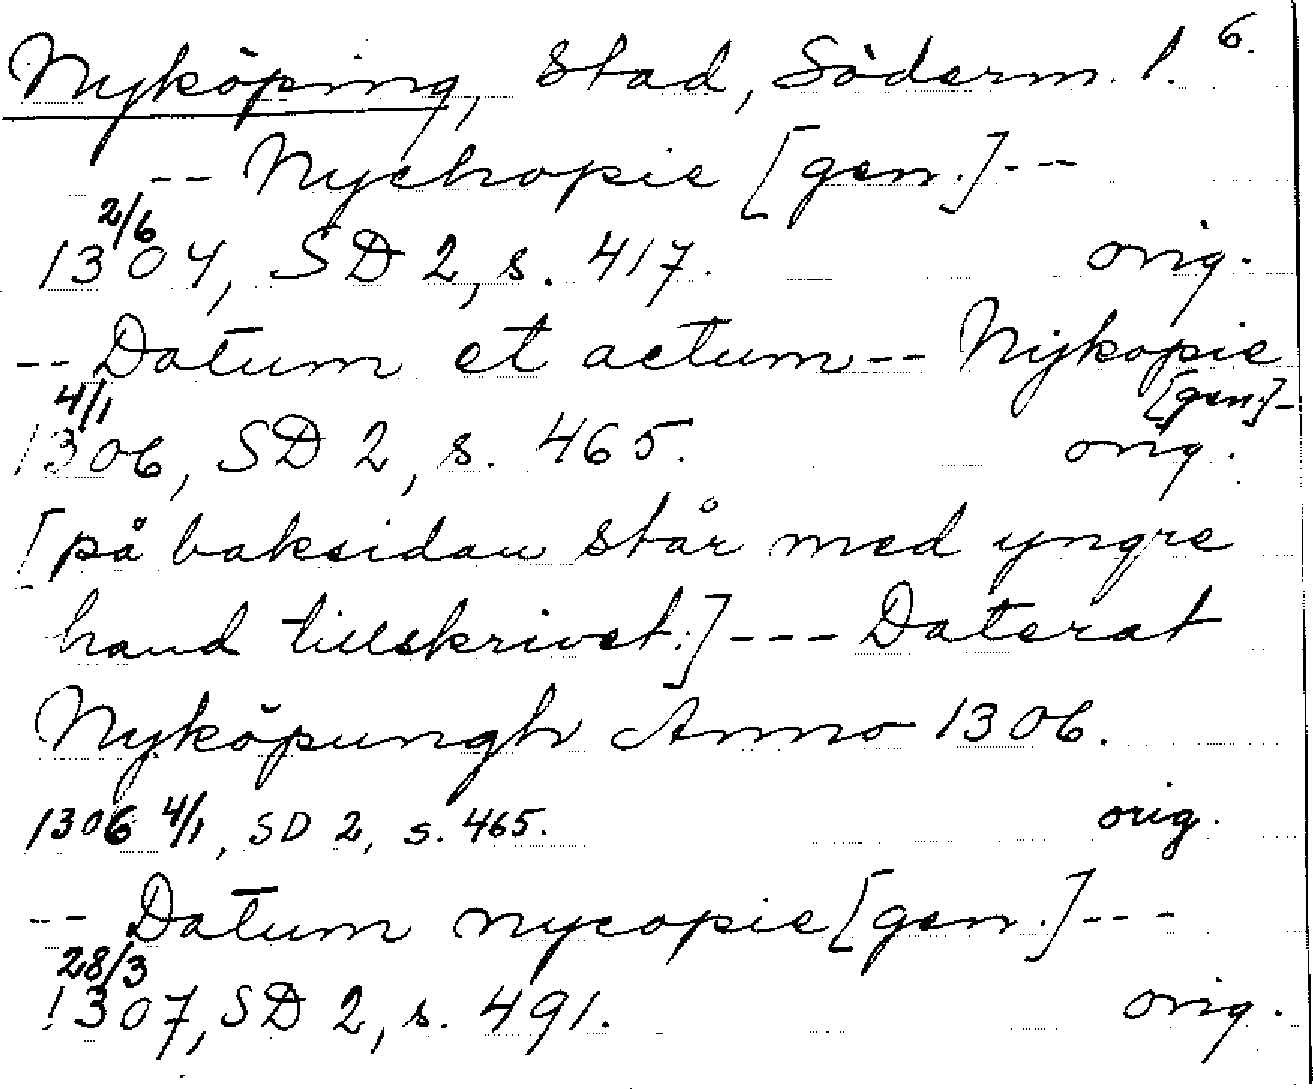 Nyköping, Stad, Söderm. l. 6.
-- Nychopie [gen.]---
2/6
1304, SD 2, s. 417. orig.
-- Datum et actum -- Nykopie
[gen.]-
4/1
1306, SD 2, s. 465. orig.
[på baksidan står med yngre
hand tillskrivet:] --- Daterat
Nyköpungh Anno 1306.
1306 4/1, SD 2, s. 465. orig.
-- Datum nycopie [gen.]---
28/3
1307, SD 2, s. 491. orig.